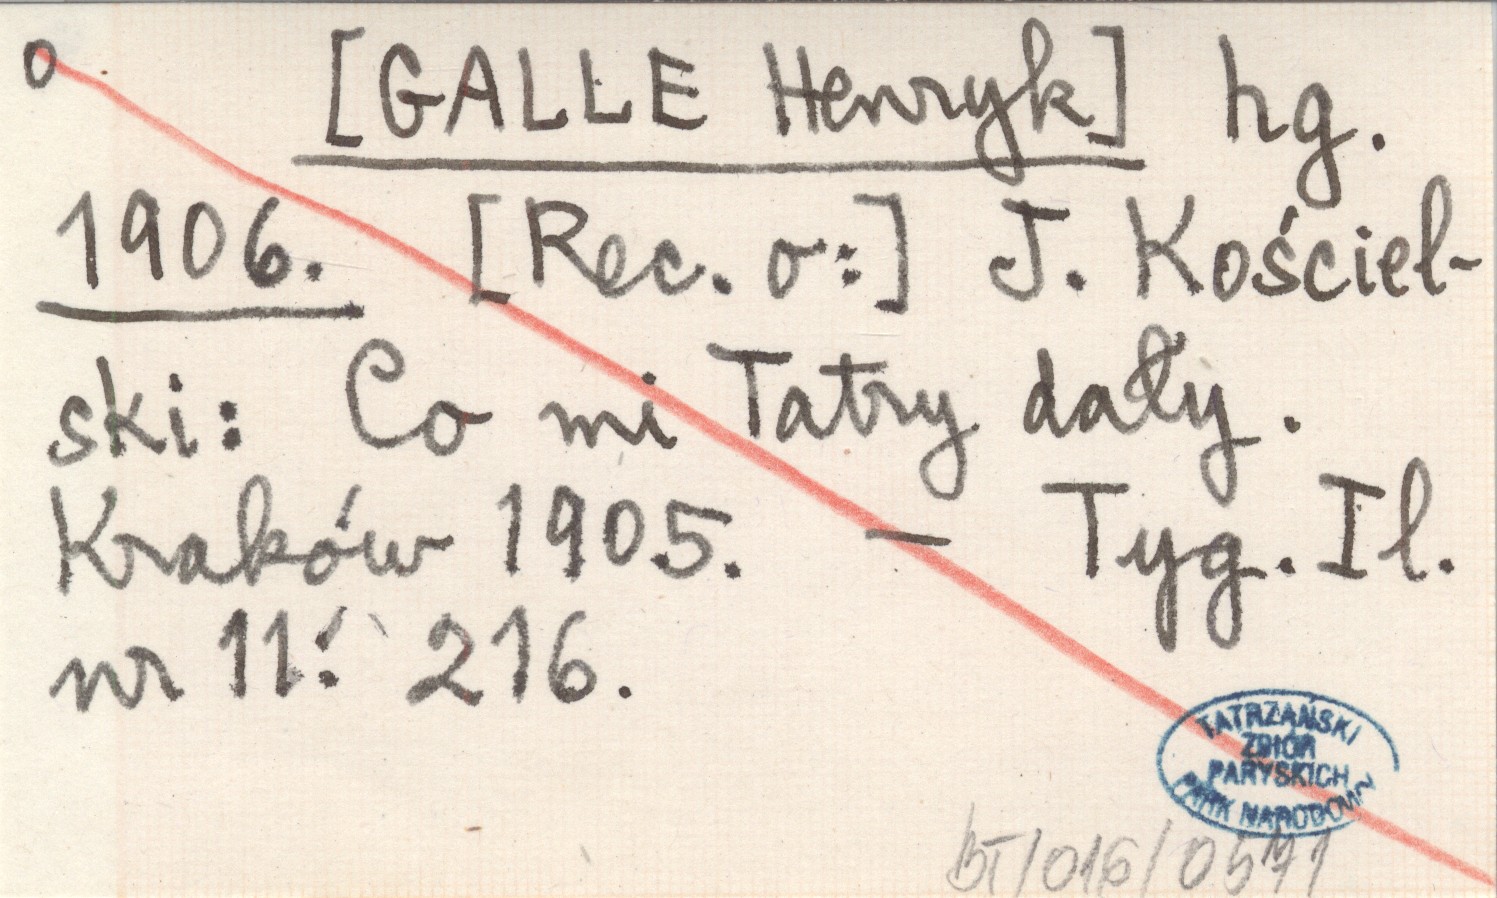 o [GALLE Henryk] hg.
1906. [Rec. o:] J. Kościel-
ski: Co mi Tatry dały.
Kraków 1905. — Tyg. Il.
nr 11: 216.
TATRZAŃSKI
ZBIÓR
PARYSKICH
PARK NARODOWY
BT/016/0571